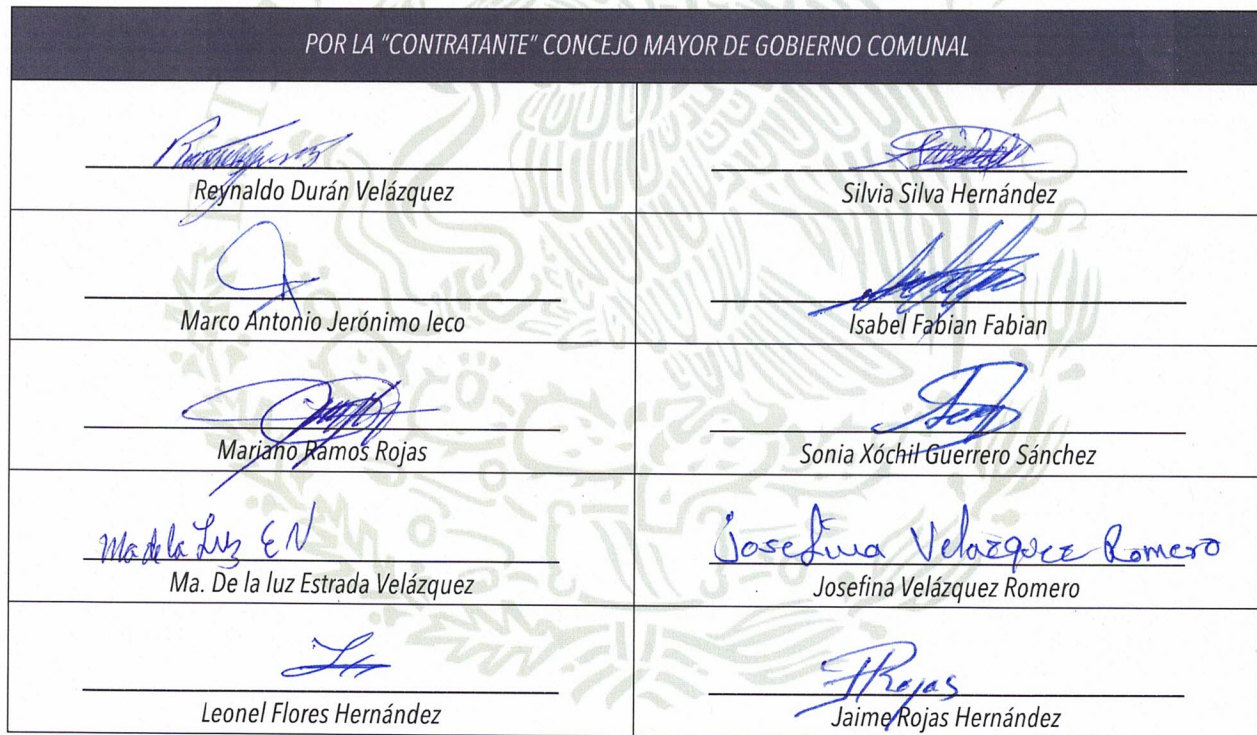 POR LA "CONTRATANTE" CONCEJO MAYOR DE GOBIERNO COMUNAL
Reynaldo Durán Velázquez
Silvia Silva Hernández
Marco Antonio Jerónimo leco
Isabel Fabian Fabian
Mariano Ramos Rojas
Sonia Xóchil Guerrero Sánchez
Ma de la Luz E V
Ma. De la luz Estrada Velázquez
Josefina Velazquez Romero
Josefina Velázquez Romero
Leonel Flores Hernández
JRojas
Jaime Rojas Hernández